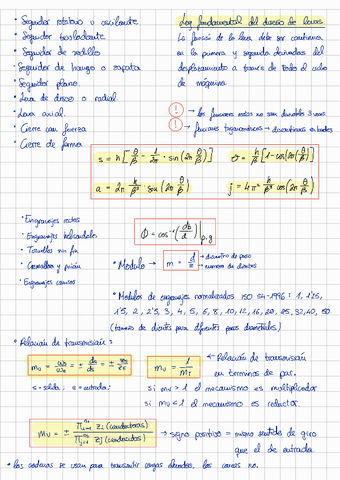 • Seguidor rotativo u oscilante
• Seguidor traslodante.
• Seguidor de rodillo
• Seguidor de hongo o zapata
• Seguidor plano.
• Leva de disco o radial.
• Leva axial.
• Cierre con fuerza
• Cierre de forma
Ley fundamental del diseño de levas:
La función de la leva debe ser continua
en la primera y segunda derivadas del
desplazamiento a través de todo el ciclo
de máquina.
! → las funciones no son derivables 3 veces
! → funciones trigonométricas → discontinuas en bordes
s = h [θ/β - 1/2π · sin(2π θ/β)]
v = h/β [1 - cos(2π θ/β)]
a = 2π h/β² · sin(2π θ/β)
j = 4π² h/β³ cos(2π θ/β)
• Engranajes rectos
• Engranajes helicoidales
• Tornillos sin fin
• Cremallera y piñón
• Engranajes cónicos
ϕ = cos⁻¹(db/d)|p,g
• Módulo → m = d/z
→ diámetro de paso
→ número de dientes
• Módulos de engranajes normalizados ISO 54-1996: 1, 1'25,
1'5, 2, 2'5, 3, 4, 5, 6, 8, 10, 12, 16, 20, 25, 32, 40, 50
(tamaño de dientes para diferentes pasos diametrales)
• Relación de transmisión:
mv = ωs/ωe = ± de/ds = ± ze/zs
s = salida; e = entrada;
mv = 1/mT
← Relación de transmisión
en términos de par.
si mv > 1 el mecanismo es multiplicador
si mv < 1 el mecanismo es reductor.
mv = ± Π zi (conductoras) / Π zj (conducidas)
→ signo positivo = mismo sentido de giro
que el de entrada.
• Las cadenas se usan para transmitir cargas elevadas, las correas no.